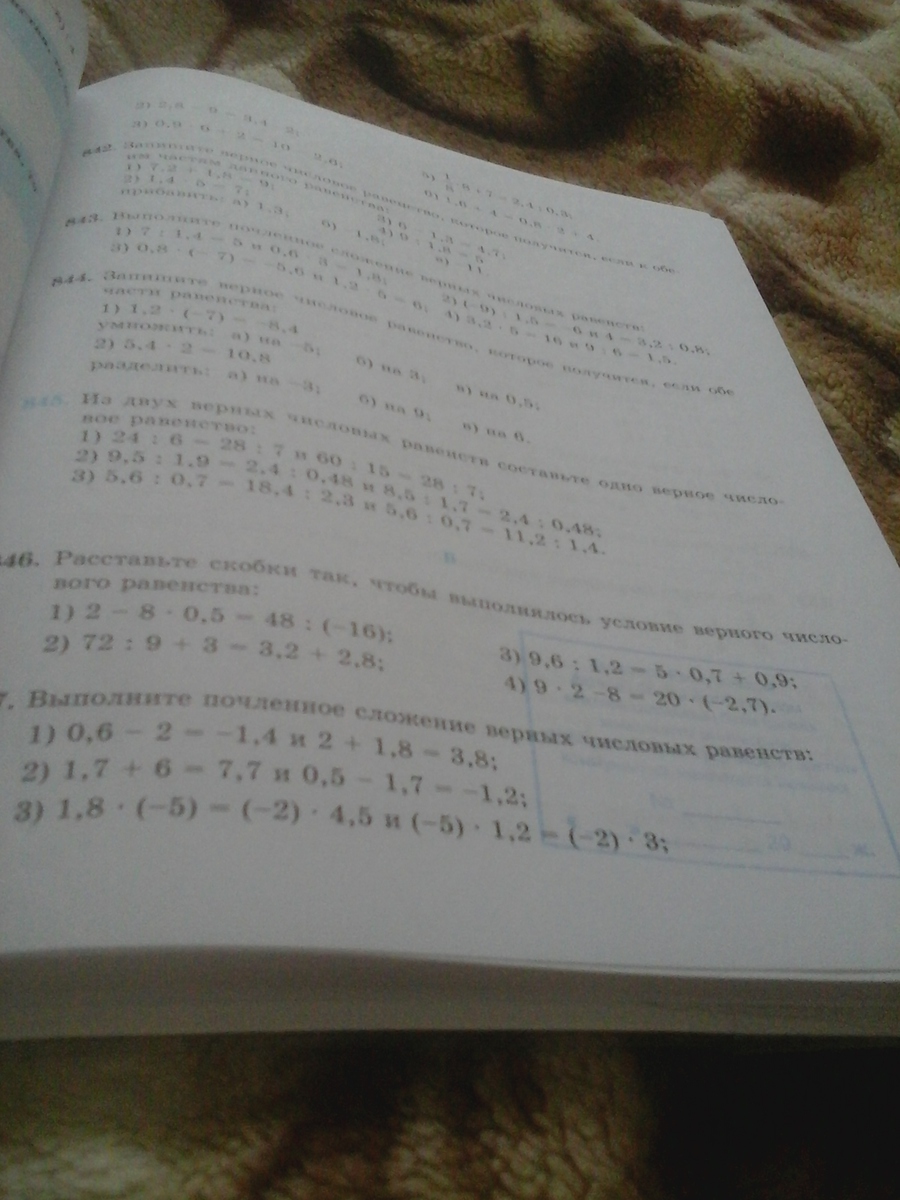 3) 0,9 · 6 + 2 = 10 − 2,6;
842. Запишите верное числовое равенство, которое получится, если к обе-
им частям данного равенства:
1) 7,2 + 1,8 = 9; 3) 6 − 1,3 = 4,7;
2) 1,4 · 5 = 7; 4) 9 : 1,8 = 5
прибавить: а) 1,3; б) −1,8; в) −11.
843. Выполните почленное сложение верных числовых равенств:
1) 7 : 1,4 = 5 и 0,6 · 3 = 1,8; 2) (−9) : 1,5 = −6 и 4 = 3,2 : 0,8;
3) 0,8 · (−7) = −5,6 и 1,2 · 5 = 6; 4) 3,2 · 5 = 16 и 9 : 6 = 1,5.
844. Запишите верное числовое равенство, которое получится, если обе
части равенства:
1) 1,2 · (−7) = −8,4
умножить: а) на −5; б) на 3; в) на 0,5;
2) 5,4 · 2 = 10,8
разделить: а) на −3; б) на 9; в) на 6.
845. Из двух верных числовых равенств составьте одно верное число-
вое равенство:
1) 24 : 6 = 28 : 7 и 60 : 15 = 28 : 7;
2) 9,5 : 1,9 = 2,4 : 0,48 и 8,5 : 1,7 = 2,4 : 0,48;
3) 5,6 : 0,7 = 18,4 : 2,3 и 5,6 : 0,7 = 11,2 : 1,4.
В
846. Расставьте скобки так, чтобы выполнилось условие верного число-
вого равенства:
1) 2 − 8 · 0,5 = 48 : (−16); 3) 9,6 : 1,2 = 5 · 0,7 + 0,9;
2) 72 : 9 + 3 = 3,2 + 2,8; 4) 9 · 2 −8 = 20 · (−2,7).
7. Выполните почленное сложение верных числовых равенств:
1) 0,6 − 2 = −1,4 и 2 + 1,8 = 3,8;
2) 1,7 + 6 = 7,7 и 0,5 − 1,7 = −1,2;
3) 1,8 · (−5) = (−2) · 4,5 и (−5) · 1,2 = (−2) · 3;